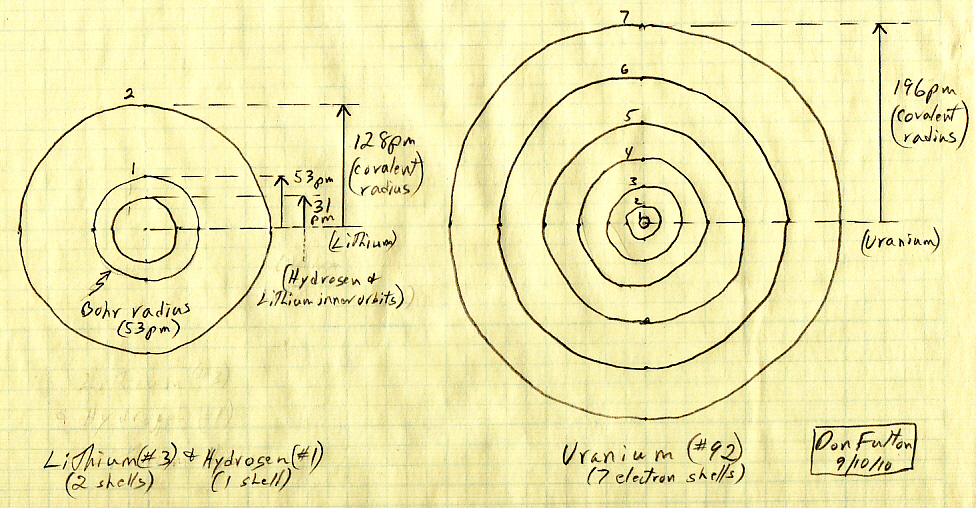 2
1
128pm
(covalent
radius)
53pm
31
pm
(Lithium)
(Hydrogen &
Lithium inner orbits)
Bohr radius
(53pm)
Lithium (#3) & Hydrogen (#1)
(2 shells) (1 shell)
7
6
5
4
3
2
1
196pm
(covalent
radius)
(Uranium)
Uranium (#92)
(7 electron shells)
Don Fulton
9/10/10